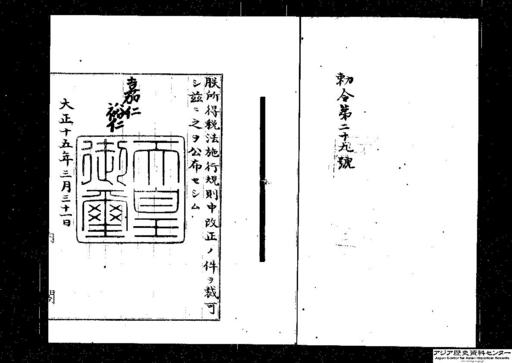 勅令第二十九號
朕所得税法施行規則中改正ノ件ヲ裁可
シ茲ニ之ヲ公布セシム
嘉仁
裕仁
天皇御璽
大正十五年三月三十一日
内閣
アジア歴史資料センター
Japan Center for Asian Historical Records